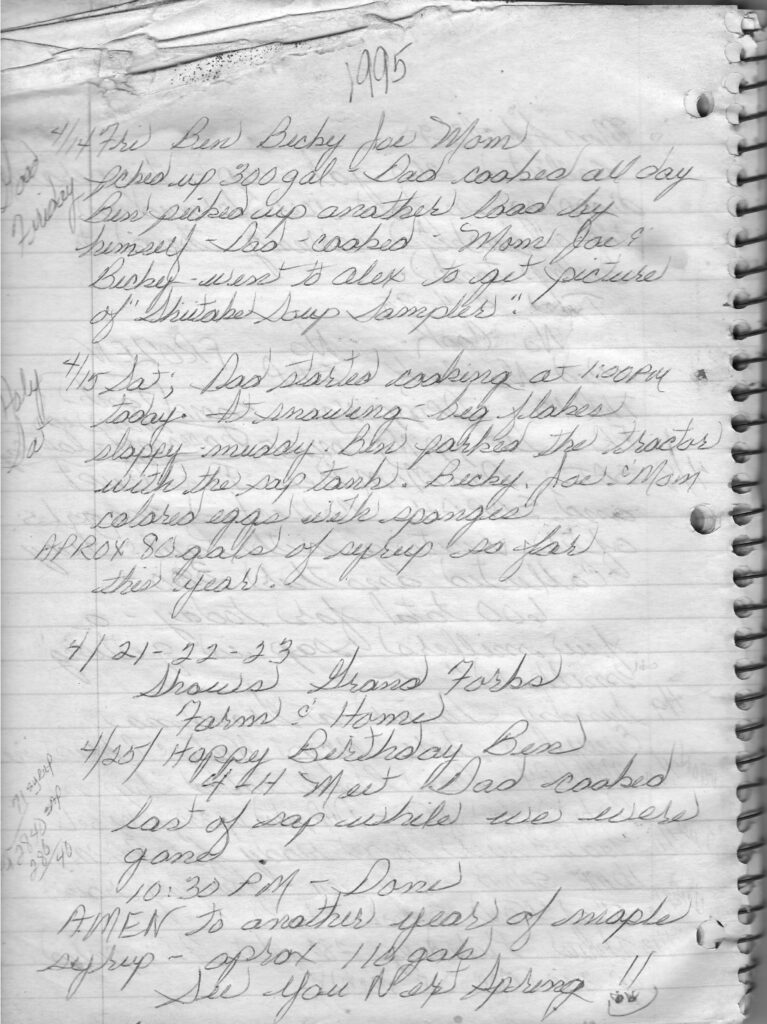 1995
4/14 Fri Ben Becky Joe Mom
Good
Friday
pcked up 300 gal - Dad cooked all day
Ben picked up another load by
himself - Dad - cooked - Mom Joe &
Becky - went to alex to get picture
of "Shitake Soup Sampler".
Holy
Sat
4/15 Sat; Dad started cooking at 1:00 PM
today. It snowing - big flakes
sloppy - muddy. Ben parked the tractor
with the sap tank. Becky, Joe & Mom
colored eggs with sponges
APROX 80 gals of syrup so far
this year.
4/21-22-23
Shows Grand Forks
Farm & Home
4/25/ Happy Birthday Ben
4-H Meet Dad cooked
last of sap while we were
gone
71 syrup
2840 sap
10:30 PM - Done
AMEN to another year of maple
syrup - aprox 110 gals
See You Next Spring !!